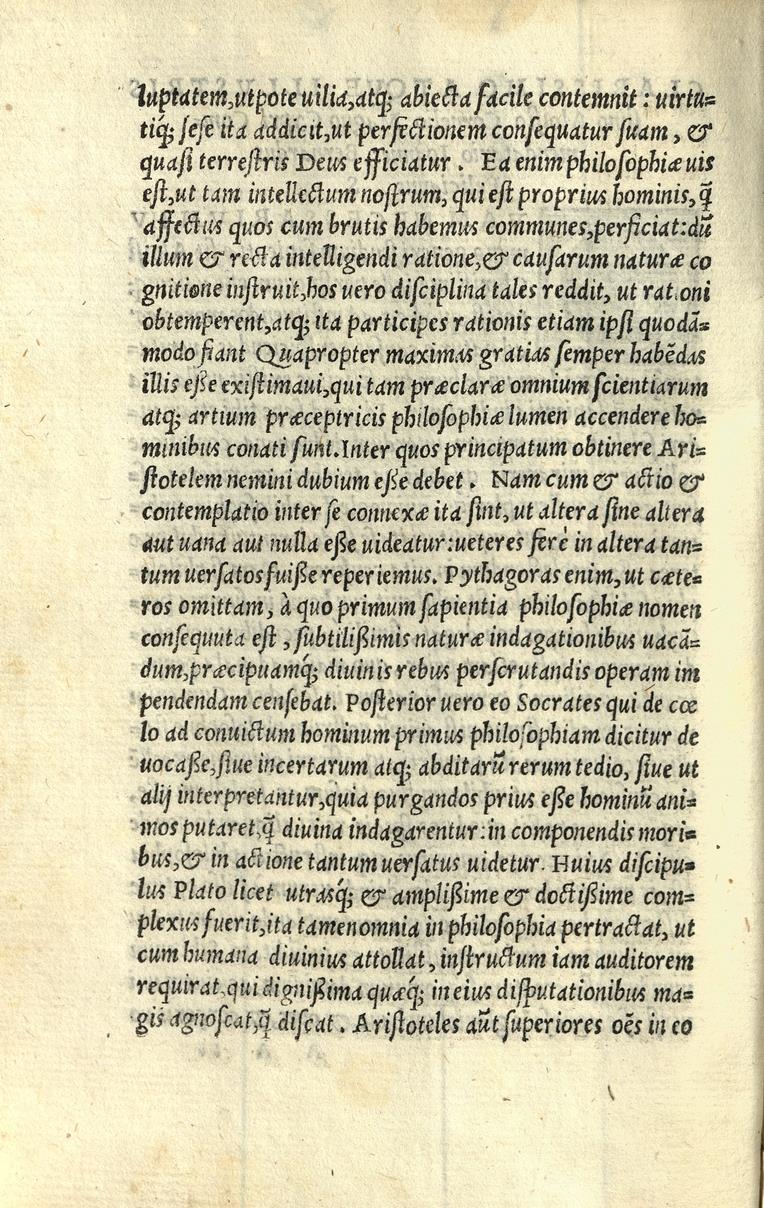 luptatem,utpote uilia,atq; abiecta facile contemnit : uirtu=
tiq́; ſeſe ita addicit,ut perfectionem conſequatur ſuam , &
quaſi terreſtris Deus efficiatur . Ea enim philoſophiæ uis
eſt,ut tam intellectum noſtrum, qui eſt proprius hominis, q̃
affectus quos cum brutis habemus communes,perficiat:dũ
illum & recta intelligendi ratione,& cauſarum naturæ co
gnitione inſtruit,hos uero diſciplina tales reddit, ut rationi
obtemperent,atq; ita participes rationis etiam ipſi quodã=
modo fiant Quapropter maximas gratias ſemper habẽdas
illis eſſe exiſtimaui,qui tam præclaræ omnium ſcientiarum
atq; artium præceptricis philoſophiæ lumen accendere ho=
minibus conati ſunt.Inter quos principatum obtinere Ari=
ſtotelem nemini dubium eſſe debet . Nam cum & actio &
contemplatio inter ſe connexæ ita ſint, ut altera ſine altera
aut uana aut nulla eße uideatur:ueteres ferè in altera tan=
tum uerſatos fuiße reperiemus. Pythagoras enim, ut cæte=
ros omittam, à quo primum ſapientia philoſophiæ nomen
conſequuta eſt , ſubtilißimis naturæ indagationibus uacã=
dum,præcipuamq́; diuinis rebus perſcrutandis operam im
pendendam cenſebat. Poſterior uero eo Socrates qui de cœ
lo ad conuictum hominum primus philoſophiam dicitur de
uocaße,ſiue incertarum atq; abditarũ rerum tedio, ſiue ut
alij interpretantur,quia purgandos prius eße hominũ ani=
mos putaret,q̃ diuina indagarentur:in componendis mori=
bus,& in actione tantum uerſatus uidetur. Huius diſcipu=
lus Plato licet utrasq́; & amplißime & doctißime com=
plexus fuerit,ita tamen omnia in philoſophia pertractat, ut
cum humana diuinius attollat, inſtructum iam auditorem
requirat,qui dignißima quæq́; in eius diſputationibus ma=
gis agnoſcat,q̃ diſcat . Ariſtoteles aũt ſuperiores oẽs in eo